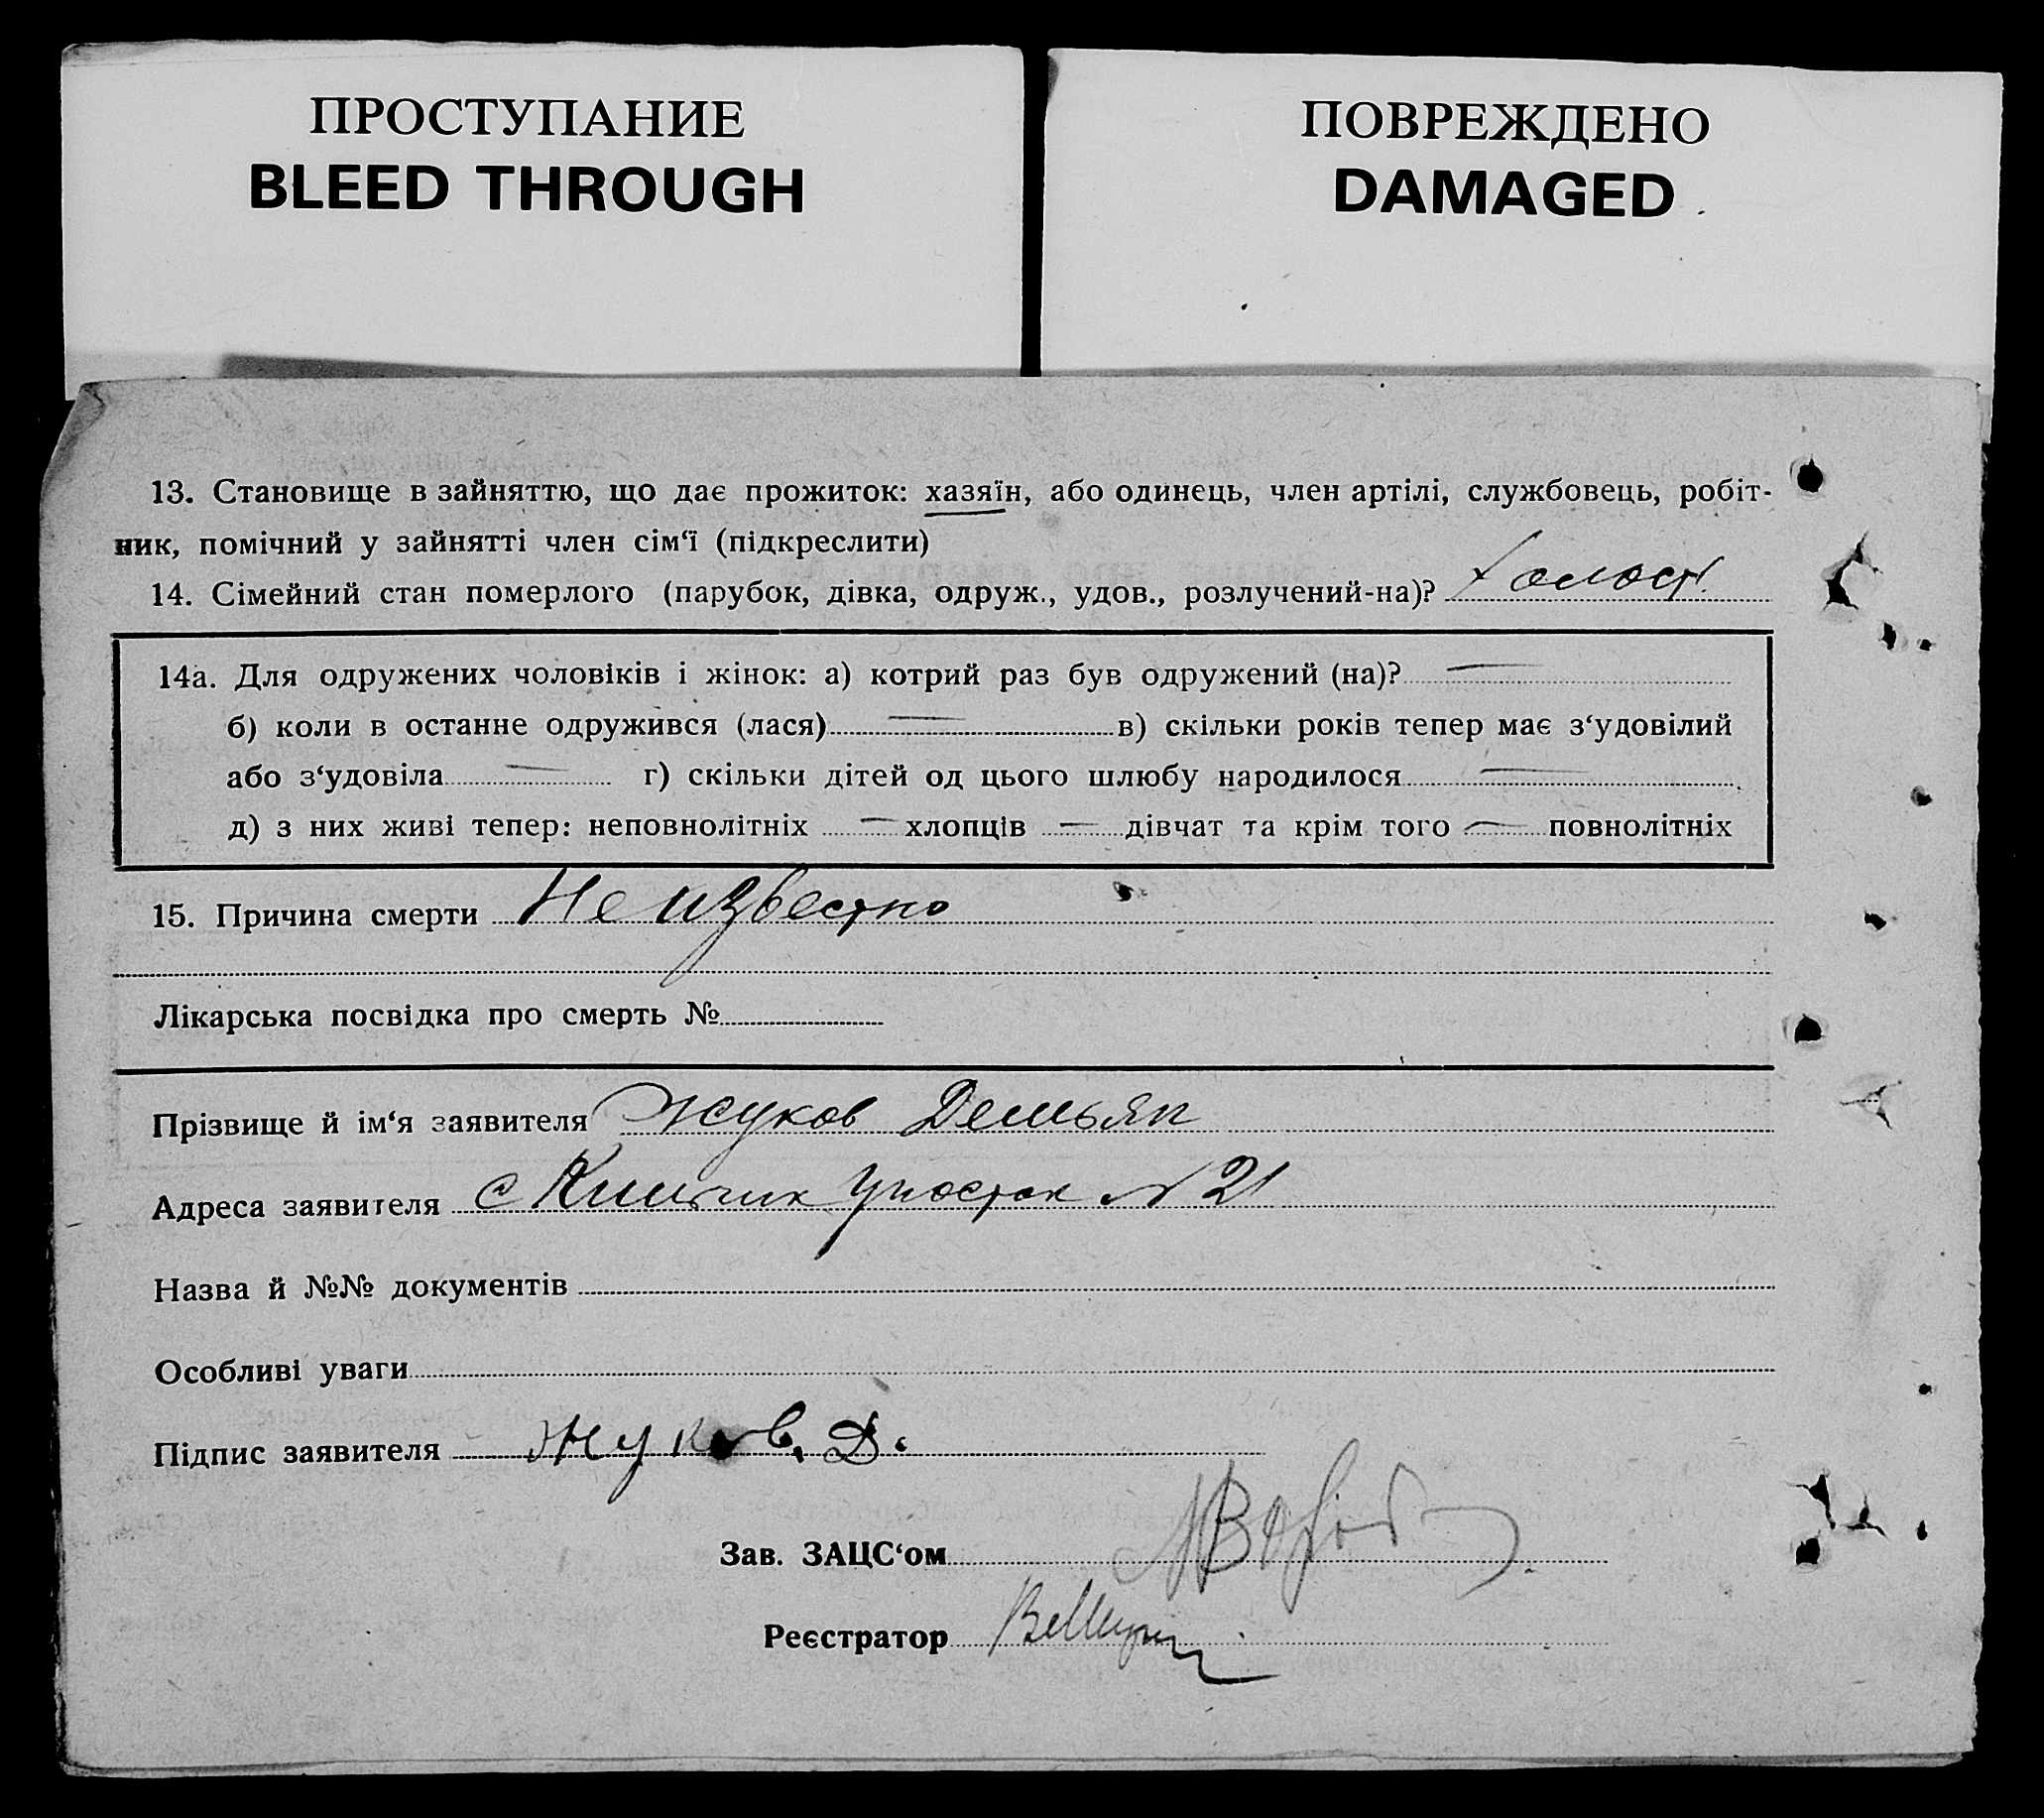 ПРОСТУПАНИЕ
BLEED THROUGH
ПОВРЕЖДЕНО
DAMAGED
13. Становище в зайняттю, що дає прожиток: хазяїн, або одинець, член артілі, службовець, робіт-
ник, помічний у зайнятті член сім‘ї (підкреслити)
14. Сімейний стан померлого (парубок, дівка, одруж., удов., розлучений-на)? Холост.
14а. Для одружених чоловіків і жінок: а) котрий раз був одружений (на)? —
б) коли в останне одружився (лася) — в) скільки років тепер має з‘удовілий
або з‘удовіла — г) скільки дітей од цього шлюбу народилося —
д) з них живі тепер: неповнолітніх — хлопців — дівчат та крім того — повнолітніх
15. Причина смерти Неизвестно
Лікарська посвідка про смерть №
Прізвище й ім‘я заявителя Жуков Демьян
Адреса заявителя с № 21
Назва й №№ документів
Особливі уваги
Підпис заявителя Жуков. Д.
Зав. ЗАЦС‘ом
Реєстратор